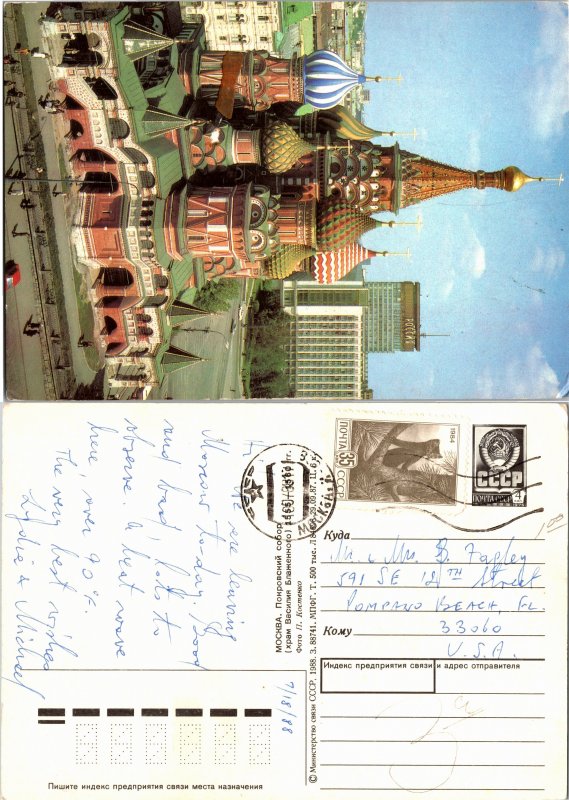 РОССИЯ
Hi,
We are leaving
Moscow to-day. Good
and bad, lots to
observe & heat wave
here over 90°F.
The very best wishes
Lydia & Michael
7/18/88
МОСКВА. Покровский собор
(храм Василия Блаженного) 1555—1561 гг.
Фото П. Костенко
© Министерство связи СССР, 1988. З. 88741. МПФГ. Т. 500 тыс.
29.09.87. 11. 6 к.
МОСКВА
1984
ПОЧТА
СССР
35
СССР
ПОЧТА СССР
4
Куда
M. & Mrs. B. Fagley
591 SE 12TH Street
POMPANO BEACH, FL.
Кому
33060
U.S.A.
Индекс предприятия связи и адрес отправителя
Пишите индекс предприятия связи места назначения
100